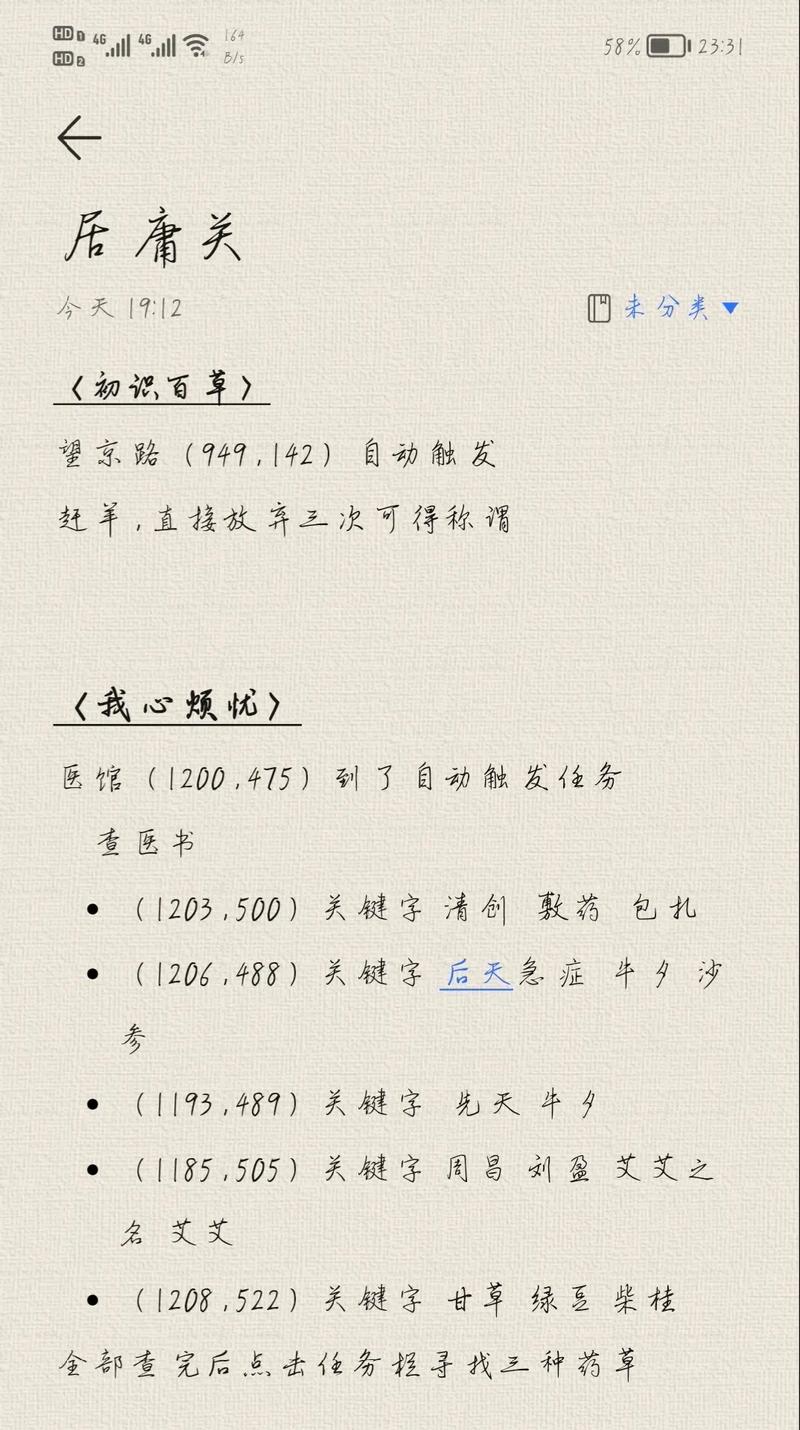 HD 1 4G 4G 164
HD 2 B/s 58% 23:31
居庸关
今天 19:12 未分类
〈初识百草〉
望京路（949，142）自动触发
赶羊，直接放弃三次可得称谓
〈我心烦忧〉
医馆（1200，475）到了自动触发任务
查医书
• （1203，500）关键字 清创 敷药 包扎
• （1206，488）关键字 后天急症 牛夕 沙
参
• （1193，489）关键字 先天 牛夕
• （1185，505）关键字 周昌 刘盈 艾艾之
名 艾艾
• （1208，522）关键字 甘草 绿豆 柴桂
全部查完后点击任务栏寻找三种药草